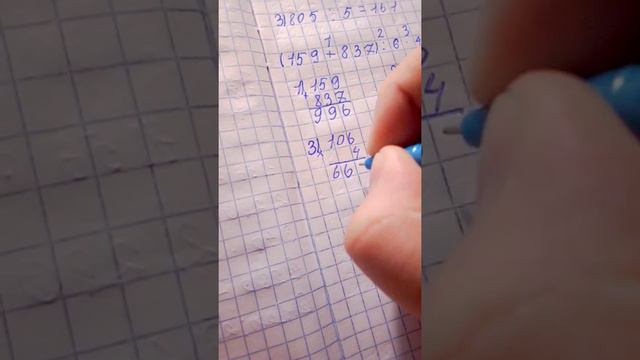 3) 805 : 5 = 161
(159 + 837) : 6
1 2 3
1) 159
+ 837
996
3) 106
× 4
66
4